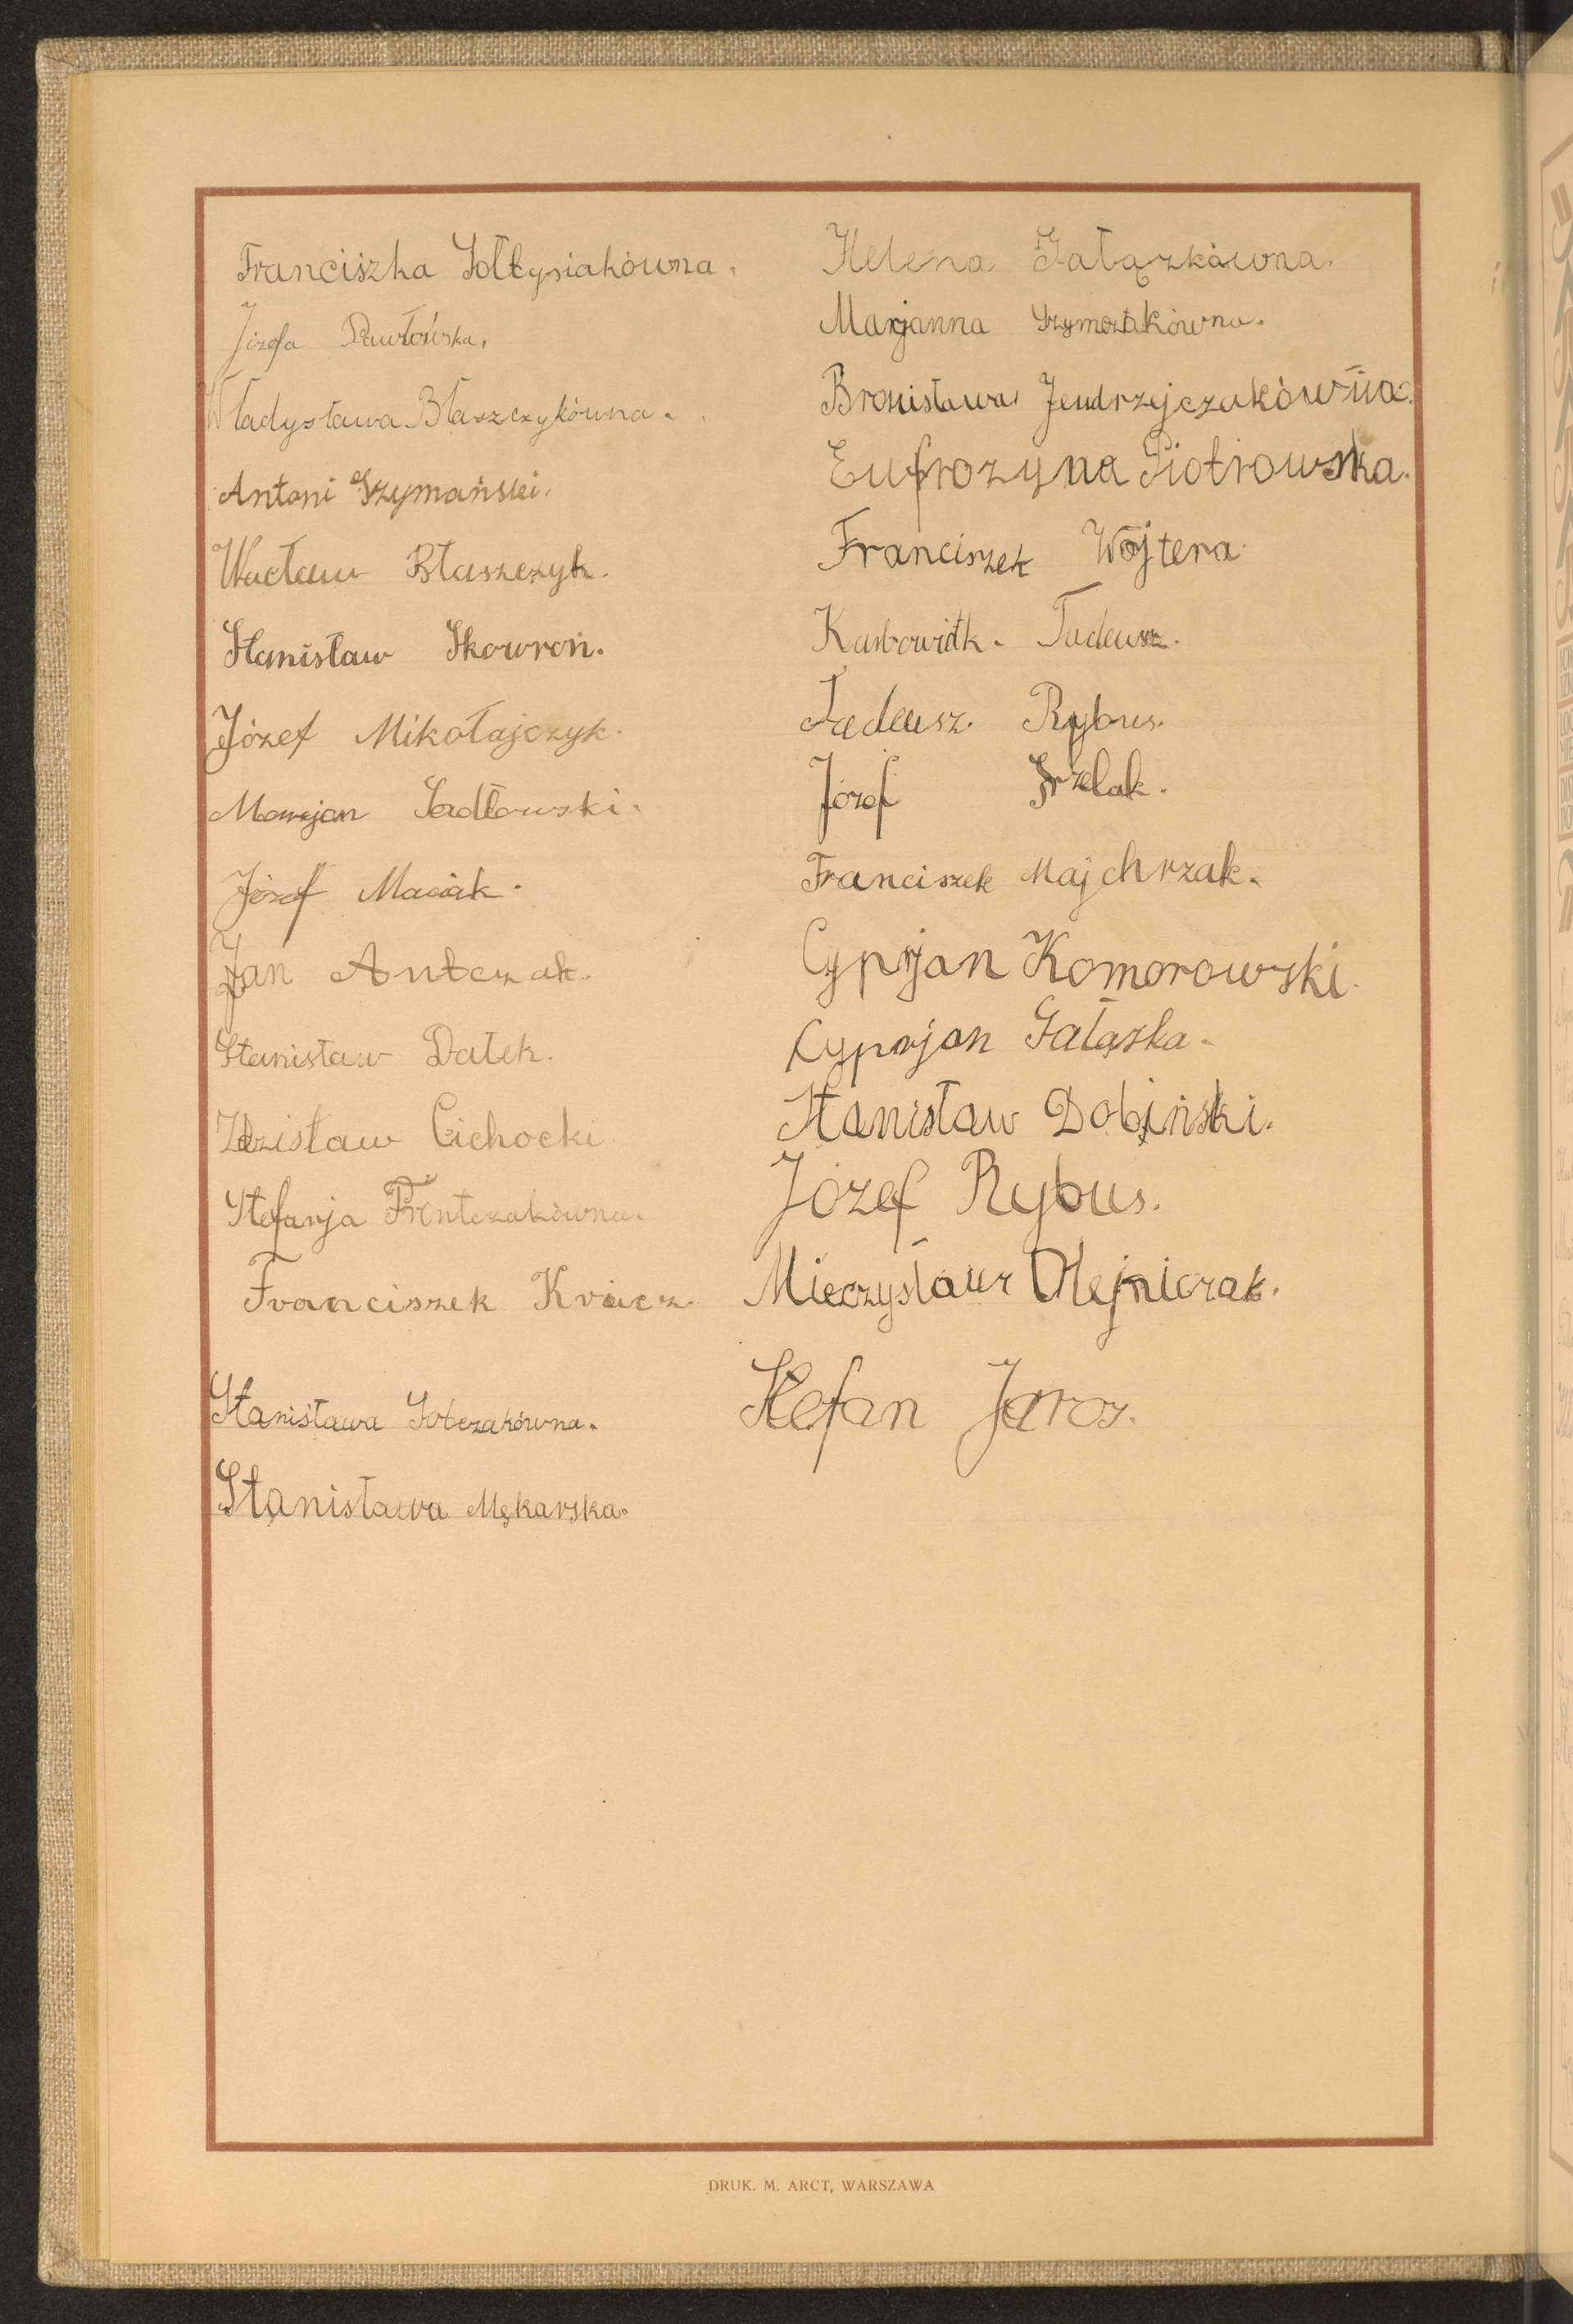 Franciszka Sołtysiakówna.
Józefa Pawłowska.
Władysława Błaszczykówna.
Antoni Szymański.
Wacław Błaszczyk.
Stanisław Skowron.
Józef Mikołajczyk.
Marjan Sadłowski.
Józef Maciak.
Jan Antczak.
Stanisław Dałek.
Zdzisław Cichocki.
Stefanja Frontczakówna.
Franciszek
Stanisława Sobczakówna.
Stanisława Mękarska.
Helena Gałązkówna.
Marjanna
Bronisława Jendrzejczakówna.
Eufrozyna Piotrowska.
Franciszek Wojtera
Tadeusz.
Tadeusz. Rybus.
Józef Grzelak.
Franciszek Majchrzak.
Cyprjan Komorowski.
Cyprjan Gałązka.
Stanisław Dobiński.
Józef Rybus.
Mieczysław Olejniczak.
Stefan Jaros.
DRUK. M. ARCT, WARSZAWA